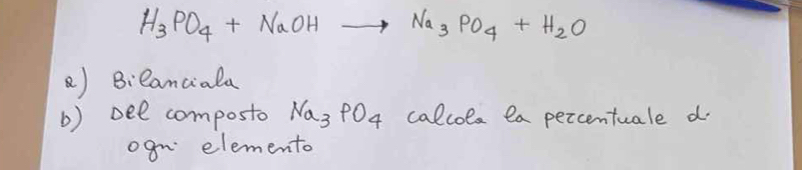 H₃PO₄ + NaOH ⟶ Na₃PO₄ + H₂O
a) Bilanciala
b) Del composto Na₃PO₄ calcola la percentuale di
ogni elemento